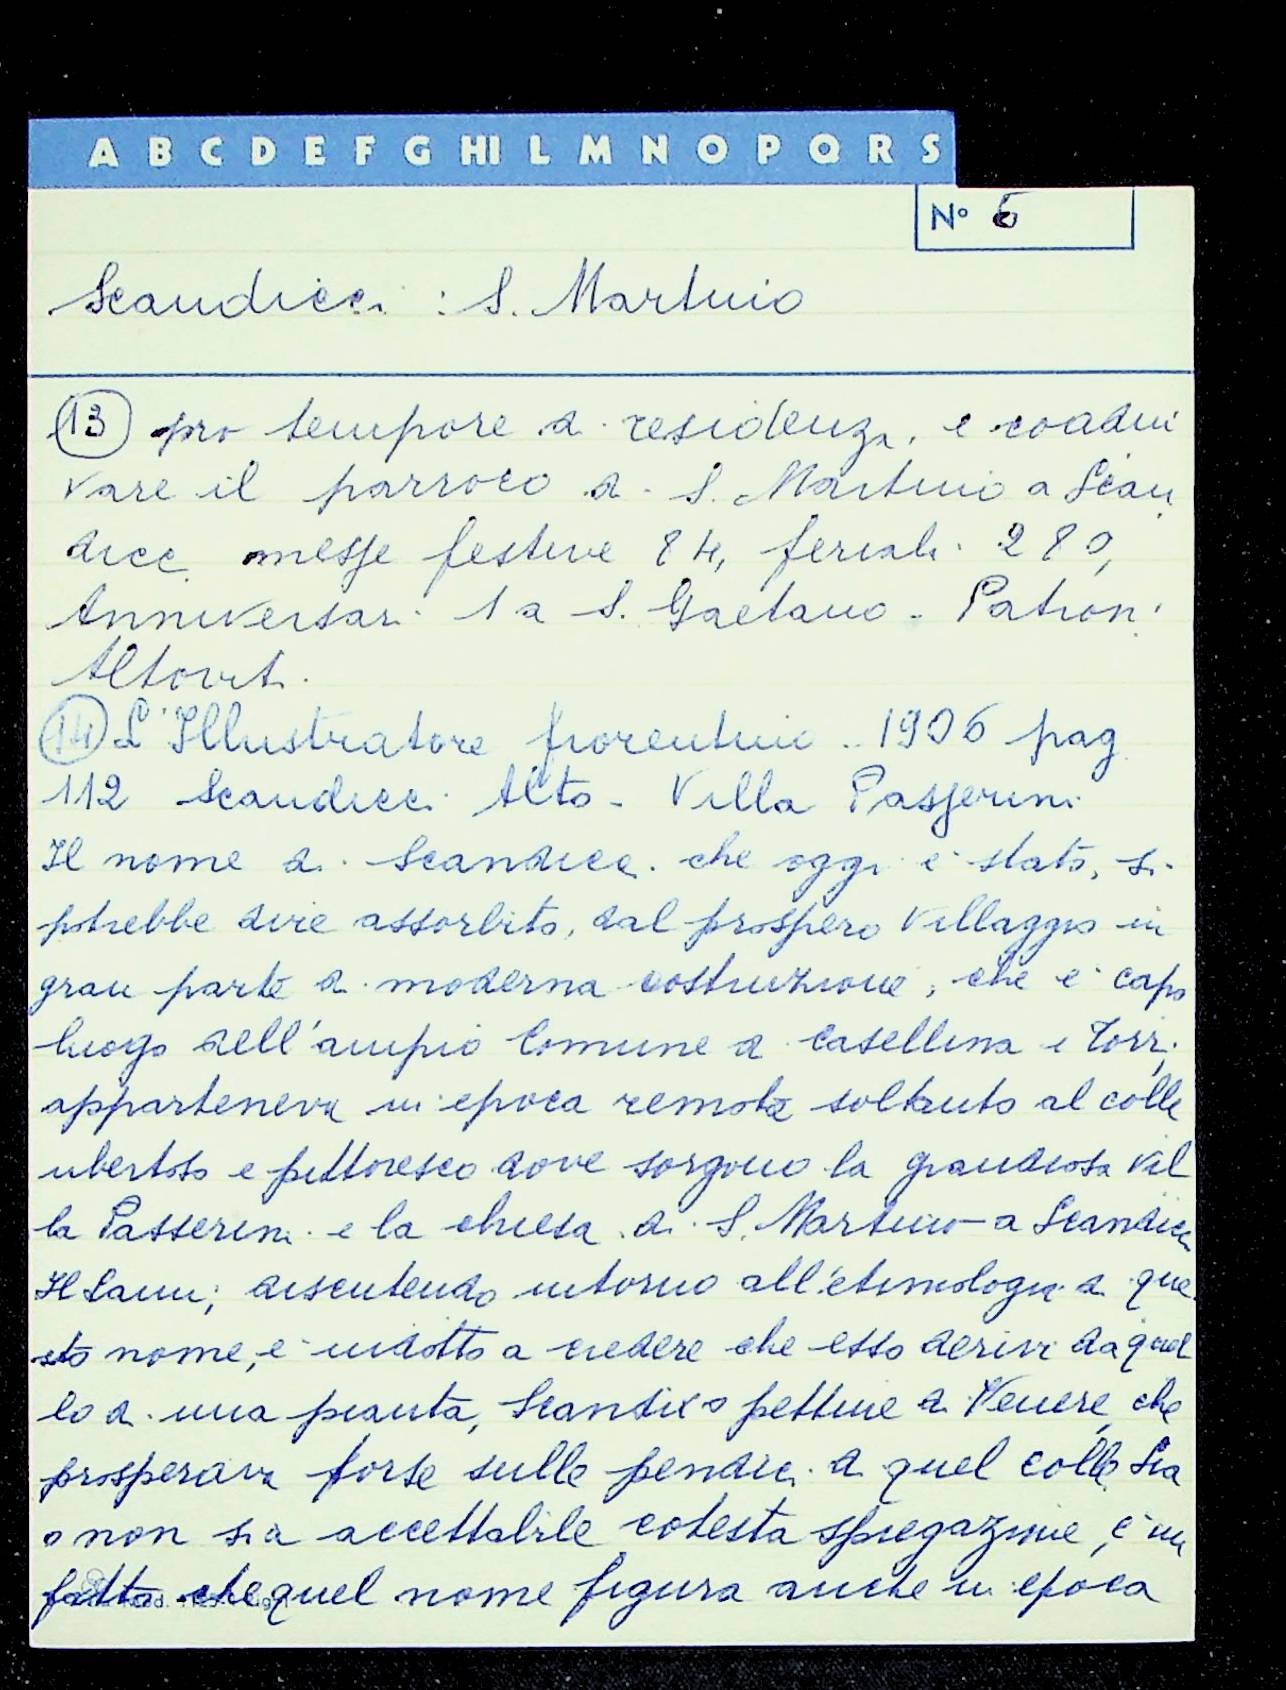 A B C D E F G HI L M N O P Q R S
N° 6
Scandicci : S. Martino
13 pro tempore di residenza, e coadiu
vare il parroco di S. Martino a Scan
dicci messe festive 84, feriali 280,
Anniversari 1 a S. Gaetano - Patroni
Altoviti.
14 L'Illustratore fiorentino - 1906 pag
112 Scandicci Alto - Villa Passerini
Il nome di Scandicci che oggi è stato, si
potrebbe dire assorbito, dal prospero villaggio in
gran parte di moderna costruzione, che è capo
luogo dell'ampio Comune di Casellina e Torri,
apparteneva in epoca remota soltanto al colle
ubertoso e pittoresco dove sorgono la grandiosa vil
la Passerini e la chiesa di S. Martino a Scandicci
Il Lami; discutendo intorno all'etimologia di que
sto nome, è indotto a credere che esso derivi da quel
lo di una pianta, Scandix o pettine di Venere, che
prosperava forse sulle pendici di quel colle. Sia
o non sia accettabile cotesta spiegazione, è un
fatto che quel nome figura anche in epoca